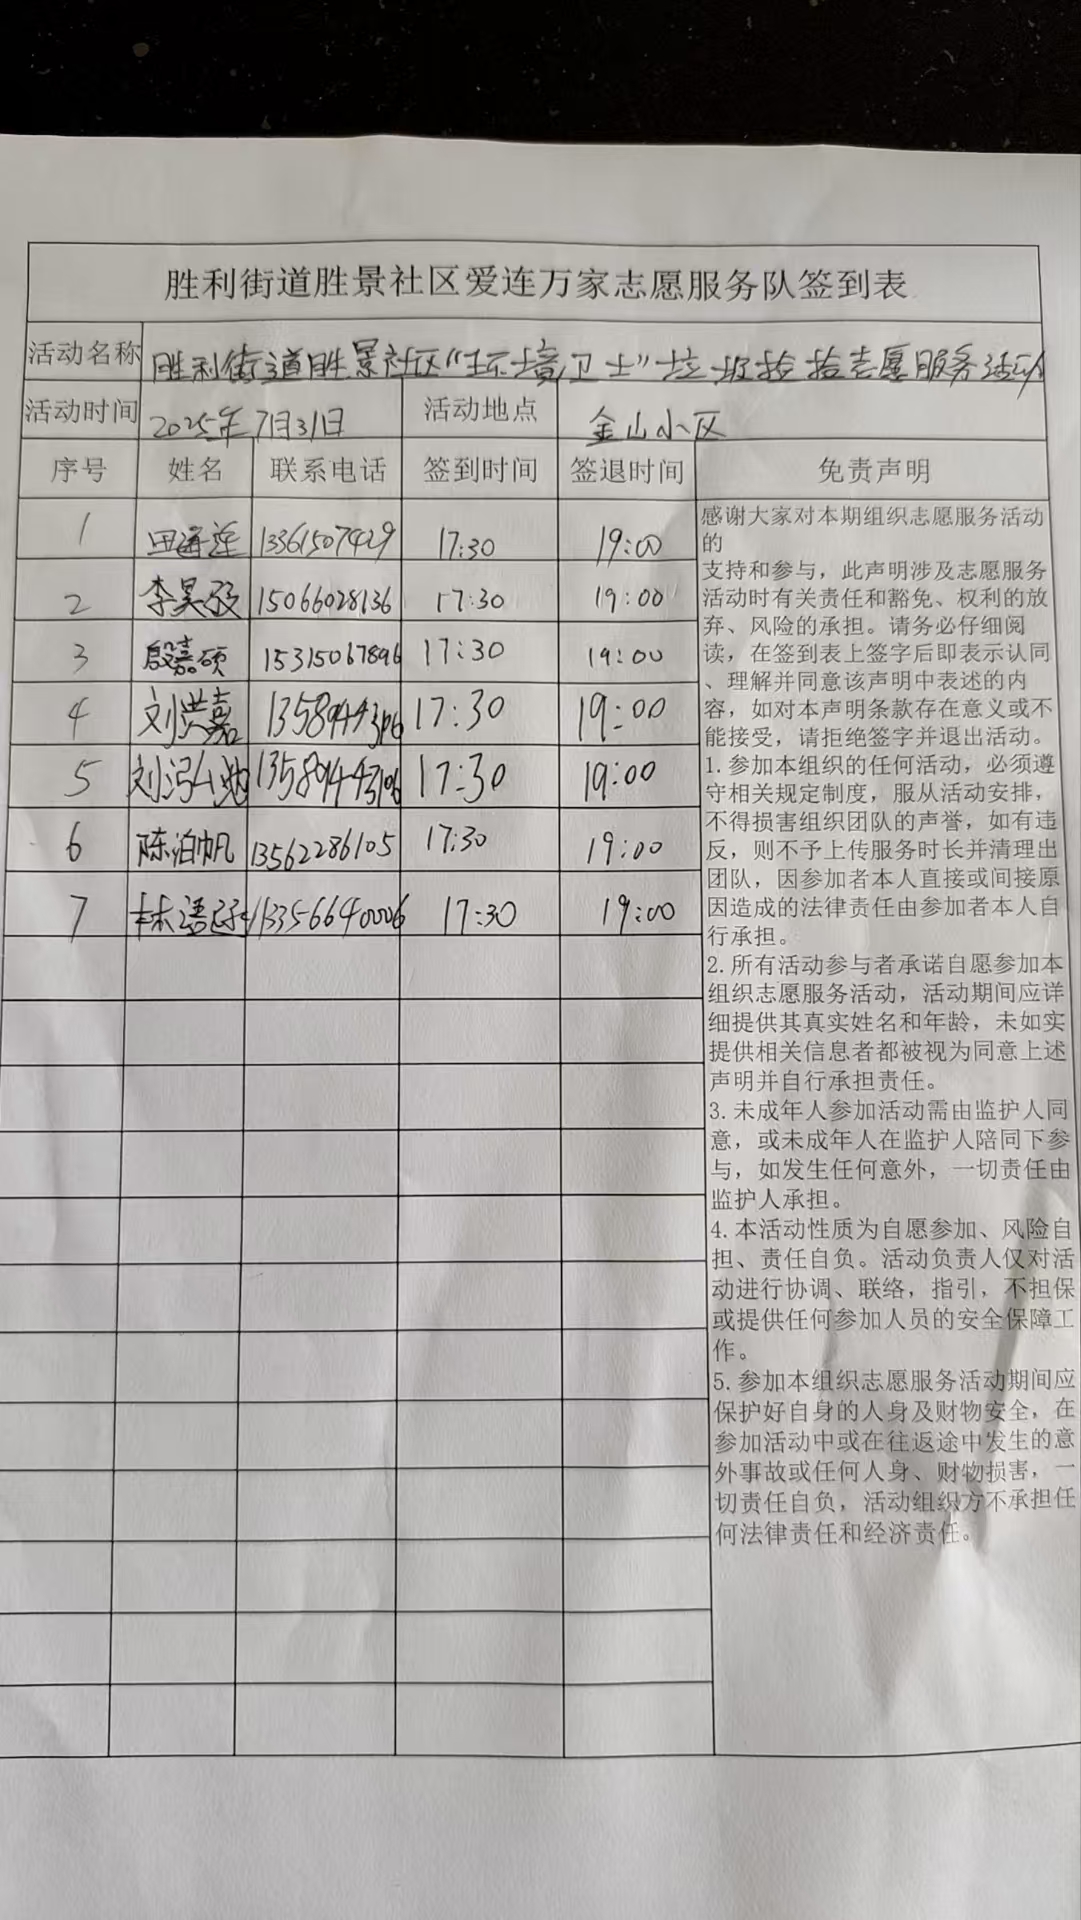 胜利街道胜景社区爱连万家志愿服务队签到表
活动名称 胜利街道胜景社区“环境卫士”垃圾捡拾志愿服务活动
活动时间 2025年7月31日 活动地点 金山小区
序号 姓名 联系电话 签到时间 签退时间 免责声明
1 田海莲 13361507429 17:30 19:00
2 李昊 15066028136 17:30 19:00
3 殷嘉硕 15315067896 17:30 19:00
4 刘洪嘉 13589443106 17:30 19:00
5 刘泓 13589443106 17:30 19:00
6 陈泊帆 13562286105 17:30 19:00
7 林语 13356640006 17:30 19:00
感谢大家对本期组织志愿服务活动
的
支持和参与，此声明涉及志愿服务
活动时有关责任和豁免、权利的放
弃、风险的承担。请务必仔细阅
读，在签到表上签字后即表示认同
、理解并同意该声明中表述的内
容，如对本声明条款存在意义或不
能接受，请拒绝签字并退出活动。
1.参加本组织的任何活动，必须遵
守相关规定制度，服从活动安排，
不得损害组织团队的声誉，如有违
反，则不予上传服务时长并清理出
团队，因参加者本人直接或间接原
因造成的法律责任由参加者本人自
行承担。
2.所有活动参与者承诺自愿参加本
组织志愿服务活动，活动期间应详
细提供其真实姓名和年龄，未如实
提供相关信息者都被视为同意上述
声明并自行承担责任。
3.未成年人参加活动需由监护人同
意，或未成年人在监护人陪同下参
与，如发生任何意外，一切责任由
监护人承担。
4.本活动性质为自愿参加、风险自
担、责任自负。活动负责人仅对活
动进行协调、联络，指引，不担保
或提供任何参加人员的安全保障工
作。
5.参加本组织志愿服务活动期间应
保护好自身的人身及财物安全，在
参加活动中或在往返途中发生的意
外事故或任何人身、财物损害，一
切责任自负，活动组织方不承担任
何法律责任和经济责任。